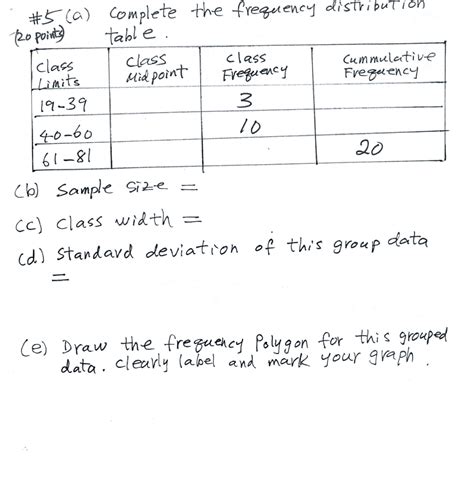 #5 (a) Complete the frequency distribution
(20 points) table.
Class Limits Class Midpoint Class Frequency Cummulative Frequency
19-39 3
40-60 10
61-81 20
(b) Sample size =
(c) Class width =
(d) Standard deviation of this group data
=
(e) Draw the frequency Polygon for this grouped
data. Clearly label and mark your graph.